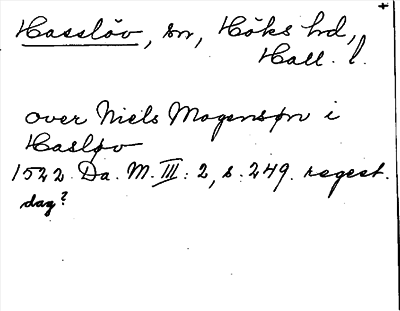 +
Hasslöv, sn, Höks hd,
Hall. l.
over Niels Mogensøn i
Hasløv
1522 Da. M. III: 2, s. 249. regest.
dag?